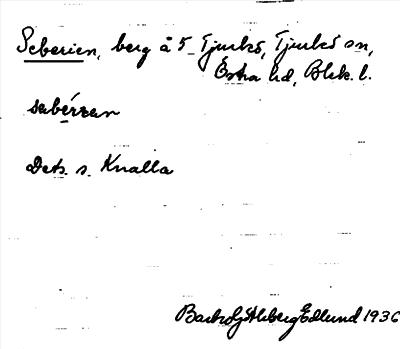 Seberien, berg å 5 Tjurkö, Tjurkö sn,
Östra hd, Blek. l.
Dets. s. Knalla
Edlund 1936